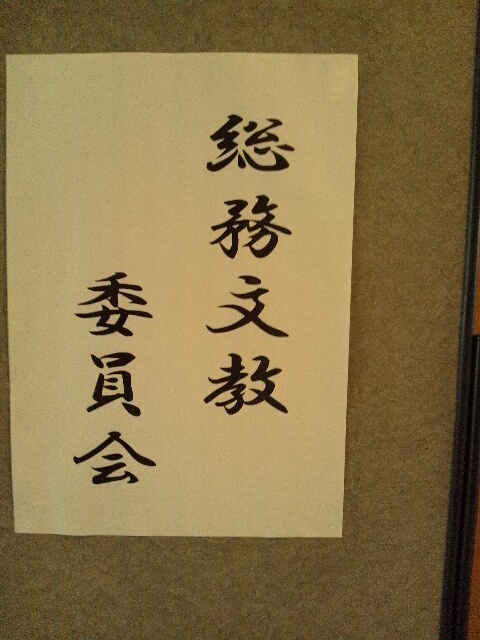 総務文教
委員会